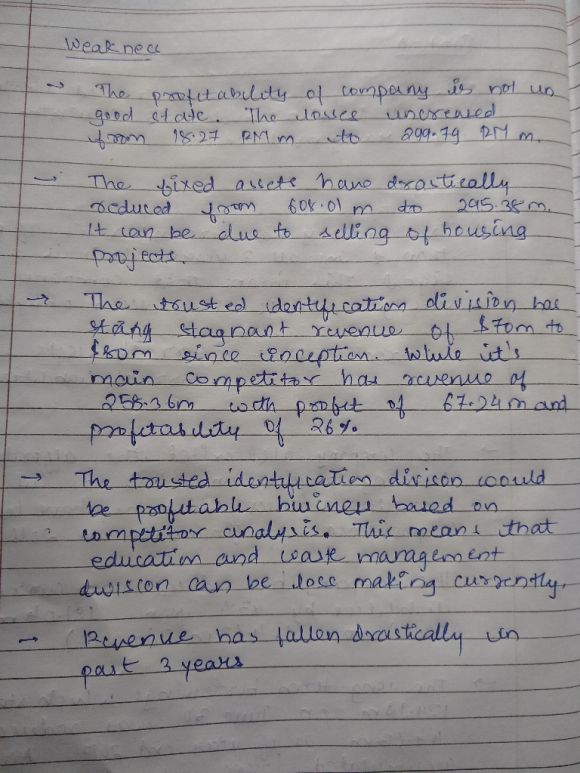 Weakness
→ The profitability of company is not in
good state. The losses increased
from 18.27 RM m to 299.79 RM m.
→ The fixed assets have drastically
reduced from 608.01 m to 295.38 m.
It can be due to selling of housing
projects.
→ The trusted identification division has
stagnant revenue of $70m to
$80m since inception. While it's
main competitor has revenue of
258.36m with profit of 67.24 m and
profitability of 26%
→ The trusted identification divison could
be profitable business based on
competitor analysis. This means that
education and waste management
division can be loss making currently.
→ Revenue has fallen drastically in
past 3 years